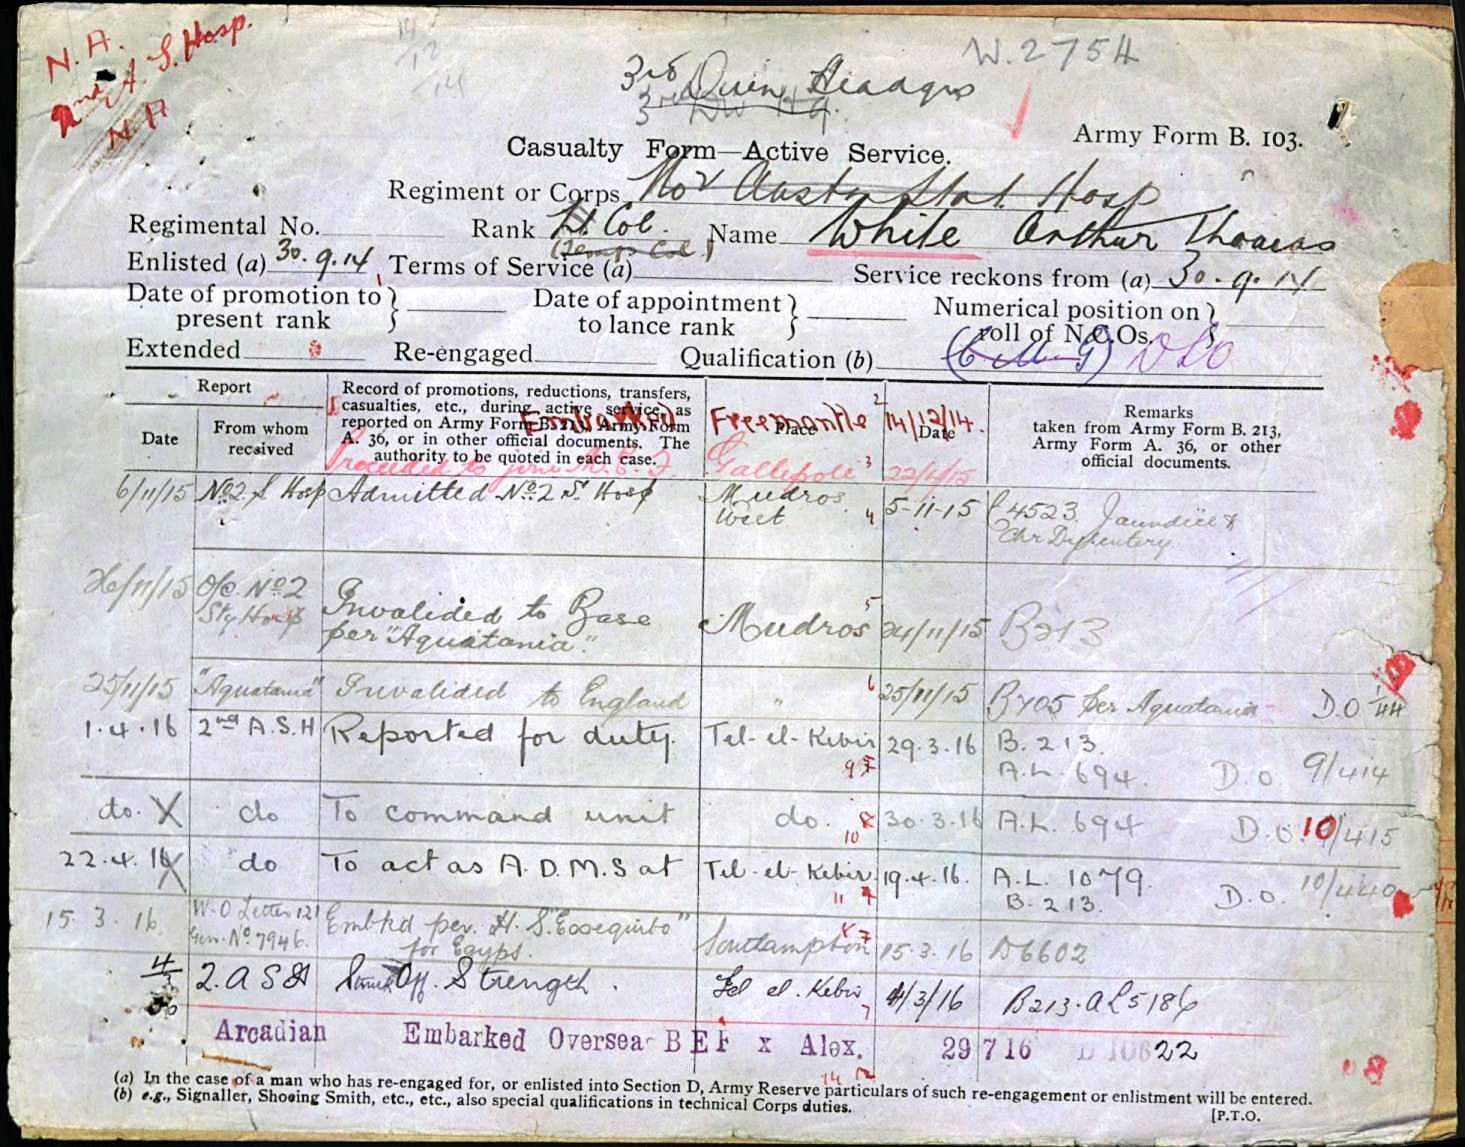 N.A.
2nd A. S. Hosp.
N A
14
12
14
W. 2754
3rd Div Headqrs
3rd Div Hq.
Army Form B. 103.
Casualty Form—Active Service.
Regiment or Corps No 2 Austn Stat. Hosp
Regimental No. Rank Lt Col. Name White Arthur Thomas
(Temp Col.)
Enlisted (a) 30.9.14 Terms of Service (a) Service reckons from (a) 30.9.14
Date of promotion to present rank } Date of appointment to lance rank } Numerical position on roll of N.C.Os. }
Extended Re-engaged Qualification (b) (C M G) DSO
Report
Date
From whom received
Record of promotions, reductions, transfers, casualties, etc., during active service, as reported on Army Form B. 213, Army Form A. 36, or in other official documents. The authority to be quoted in each case.
Place
Date
Remarks
taken from Army Form B. 213, Army Form A. 36, or other official documents.
Embarked Freemantle 2 14/12/14.
Proceeded to join M.E.F. Gallipoli 3
6/11/15 No 2. S Hosp Admitted No 2 St Hosp Mudros West 4 5-11-15 4523 Jaundice & Chr Dysentery
26/11/15 O/C No 2 Sty Hosp Invalided to Base per "Aquatania". Mudros 5 24/11/15 B213
25/11/15 "Aquatania" Invalided to England " 6 25/11/15 B705 per Aquatania D.O 44
1.4.16 2nd A.S.H Reported for duty. Tel-el-Kebir 29.3.16 B. 213. A.L. 694. D.O 9/414
do. X do To command unit do. 10 30.3.16 A.L. 694 D.O. 10/415
22.4.16 do To act as A.D.M.S at Tel-el-Kebir. 11 19.4.16. A.L. 1079. B. 213. D.O. 10/440
15.3.16. W.O Letter 121 Gen. No 7946. Embkd per. H.S. "Essequibo" for Egypt. Southampton 15.3.16 D6602
2. A S H Struck Off. Strength. Tel el. Kebir 4/3/16 B213. AL 5186
Arcadian Embarked Oversea BEF x Alex. 29 7 16 D 10622
(a) In the case of a man who has re-engaged for, or enlisted into Section D, Army Reserve particulars of such re-engagement or enlistment will be entered.
(b) e.g., Signaller, Shoeing Smith, etc., etc., also special qualifications in technical Corps duties.
[P.T.O.